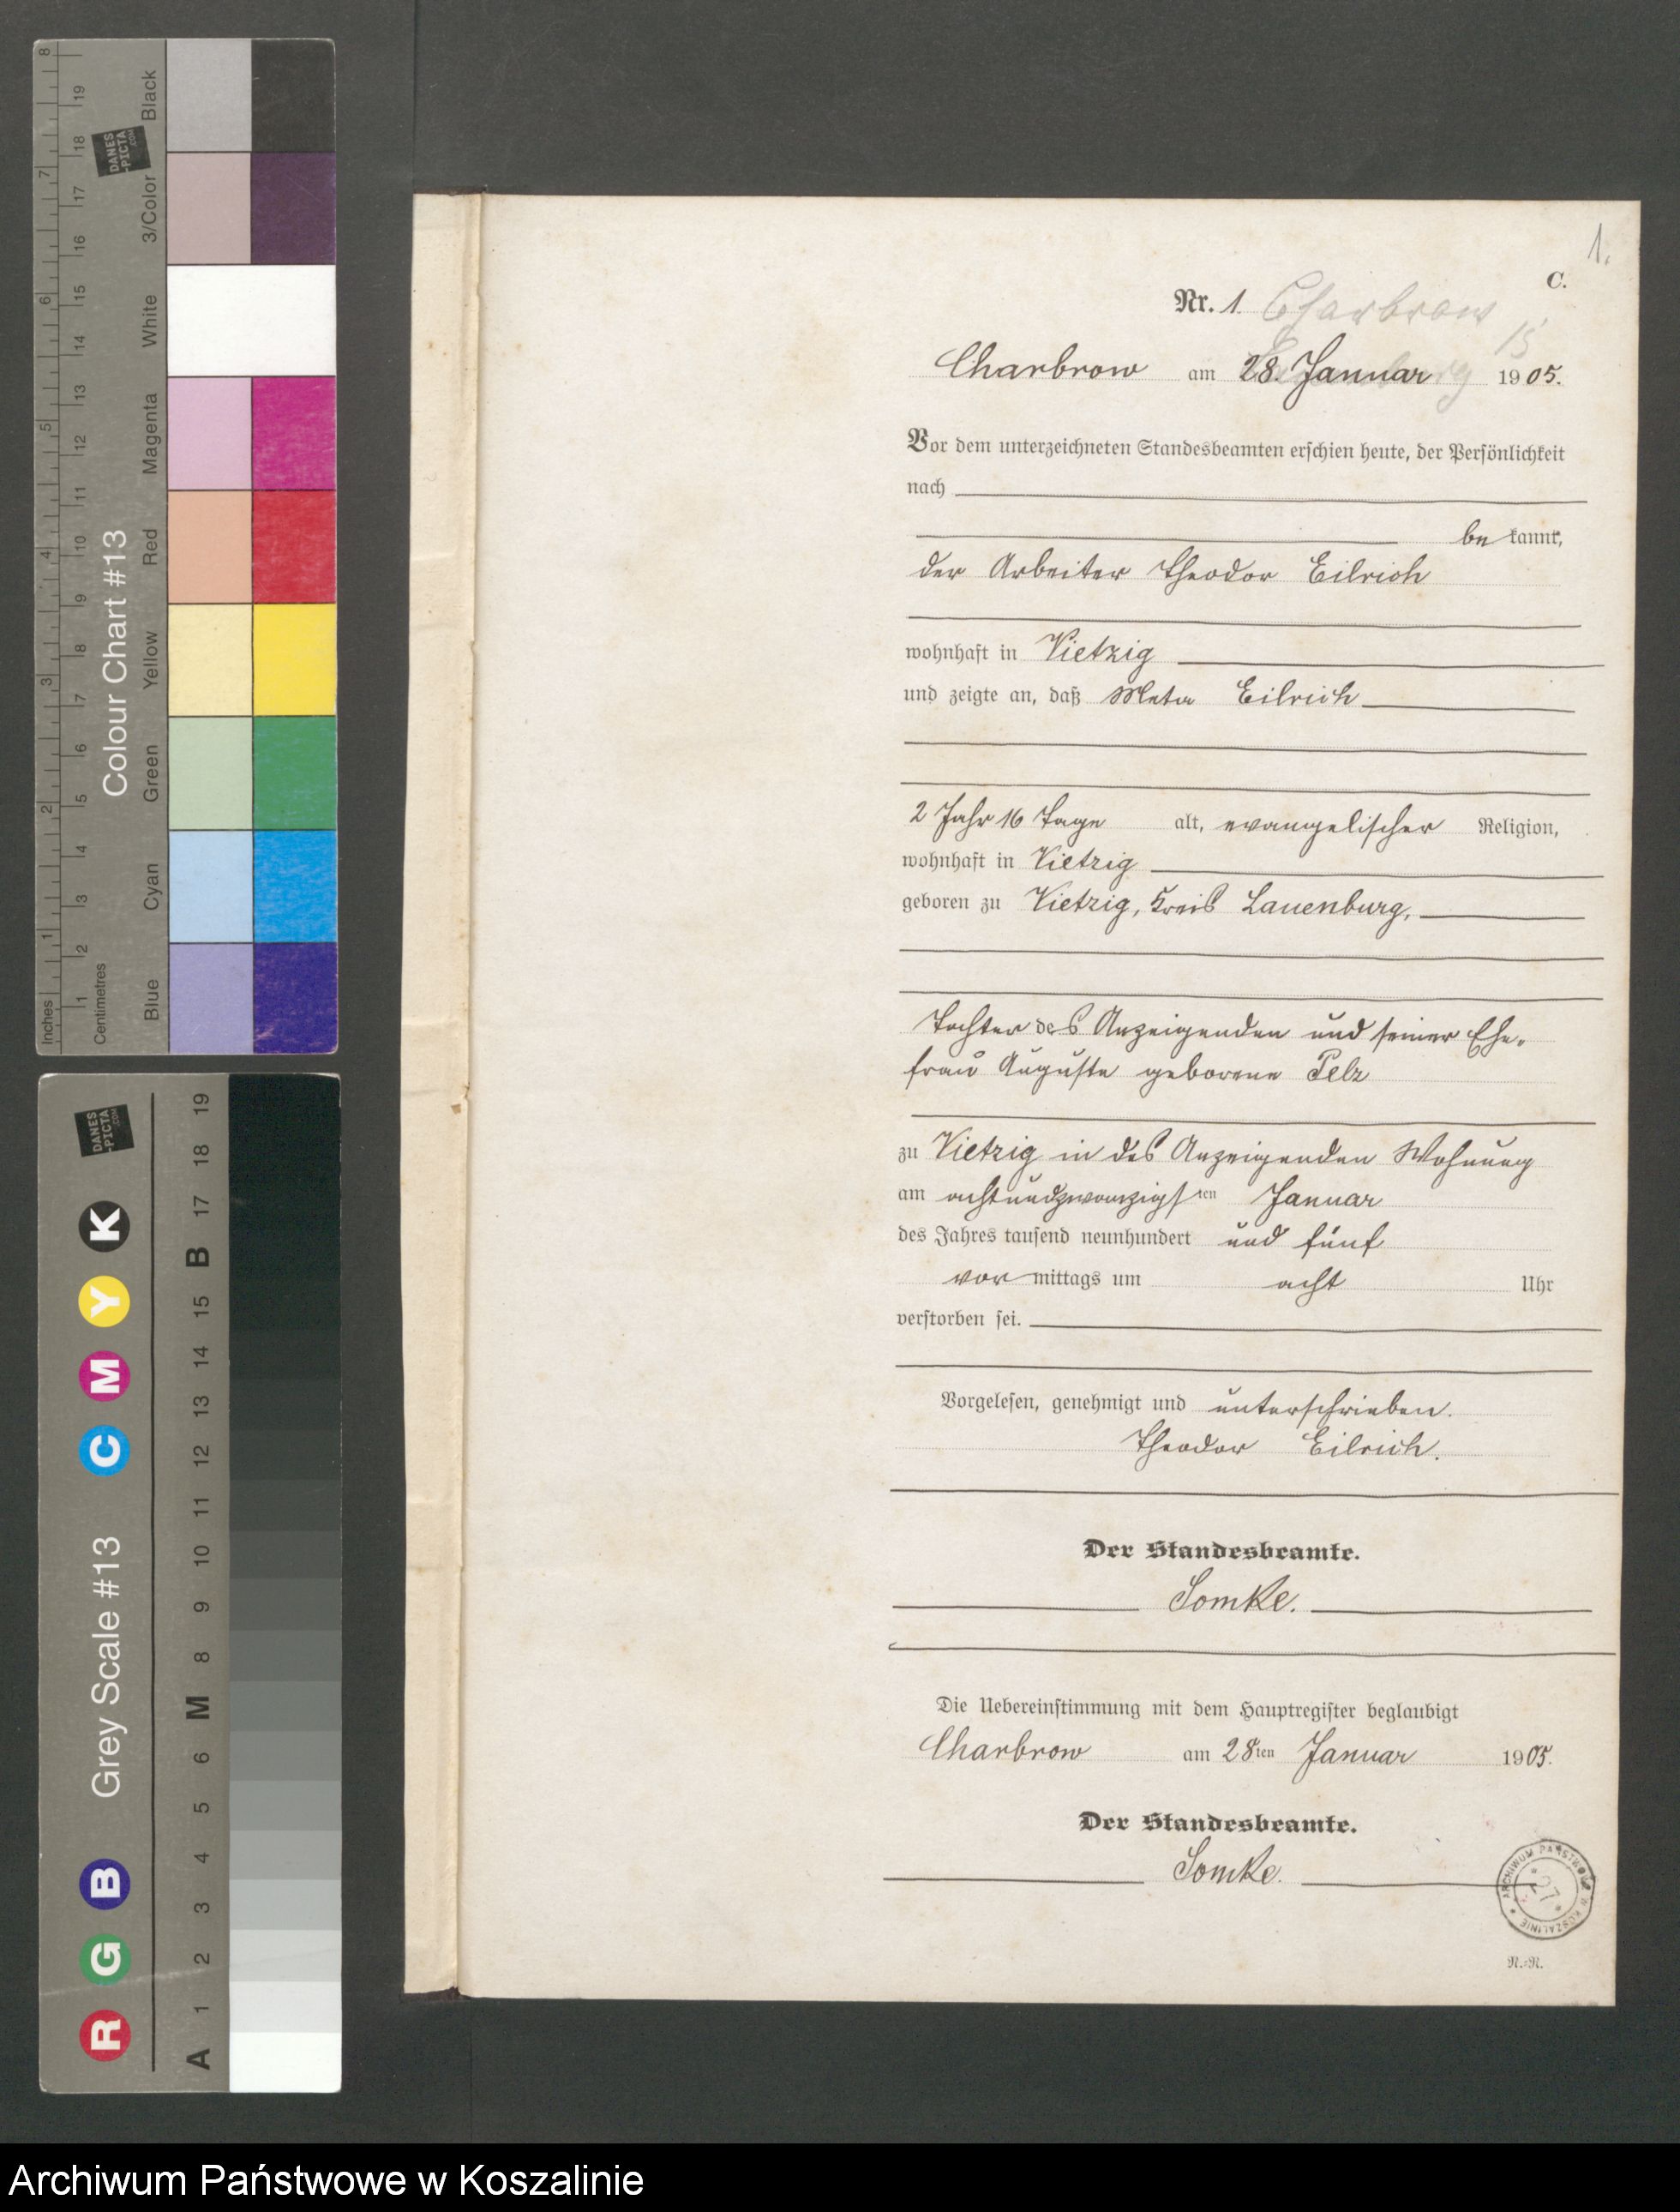 8
7
6
5
4
3
2
1
Inches
19
18
17
16
15
14
13
12
11
10
9
8
7
6
5
4
3
2
1
Centimetres
Colour Chart #13
DANES
-PICTA
.COM
Black
3/Color
White
Magenta
Red
Yellow
Green
Cyan
Blue
Grey Scale #13
DANES
-PICTA
.COM
K
Y
M
C
B
G
R
19
18
17
B
15
14
13
12
11
10
9
8
M
6
5
4
3
2
1
A
1.
C.
Nr. 1. Charbrow
15
Charbrow am 28. Januar 1905.
Vor dem unterzeichneten Standesbeamten erschien heute, der Persönlichkeit
nach
be kannt,
der Arbeiter Theodor Eilrich
wohnhaft in Vietzig
und zeigte an, daß Meta Eilrich
2 Jahr 16 Tage alt, evangelischer Religion,
wohnhaft in Vietzig
geboren zu Vietzig, Kreis Lauenburg,
Tochter des Anzeigenden und seiner Ehe-
frau Auguste geborene Pelz
zu Vietzig in des Anzeigenden Wohnung
am achtundzwanzigsten Januar
des Jahres tausend neunhundert und fünf
vor mittags um acht Uhr
verstorben sei.
Vorgelesen, genehmigt und unterschrieben.
Theodor Eilrich.
Der Standesbeamte.
Somke.
Die Uebereinstimmung mit dem Hauptregister beglaubigt
Charbrow am 28ten Januar 1905.
Der Standesbeamte.
Somke.
ARCHIWUM PAŃSTWOWE W KOSZALINIE
*27*
N.-N.
Archiwum Państwowe w Koszalinie